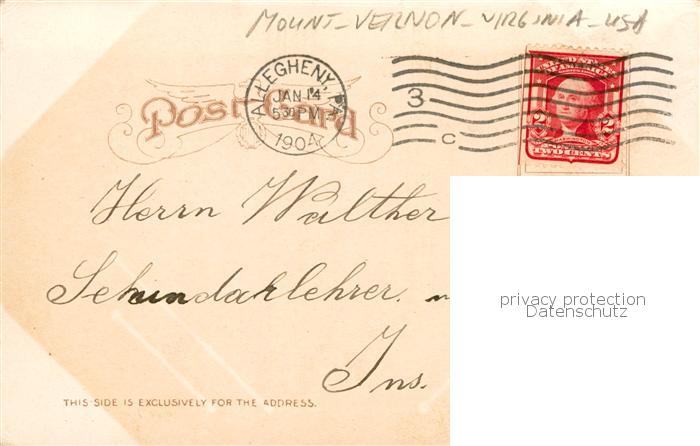 MOUNT-VERNON-VIRGINIA-USA
ALLEGHENY, PA.
JAN 14
530 PM
1904
3
C
Post Card
2 2
TWO CENTS
Herrn Walther
Sekundarlehrer.
Ins.
privacy protection
Datenschutz
THIS SIDE IS EXCLUSIVELY FOR THE ADDRESS.